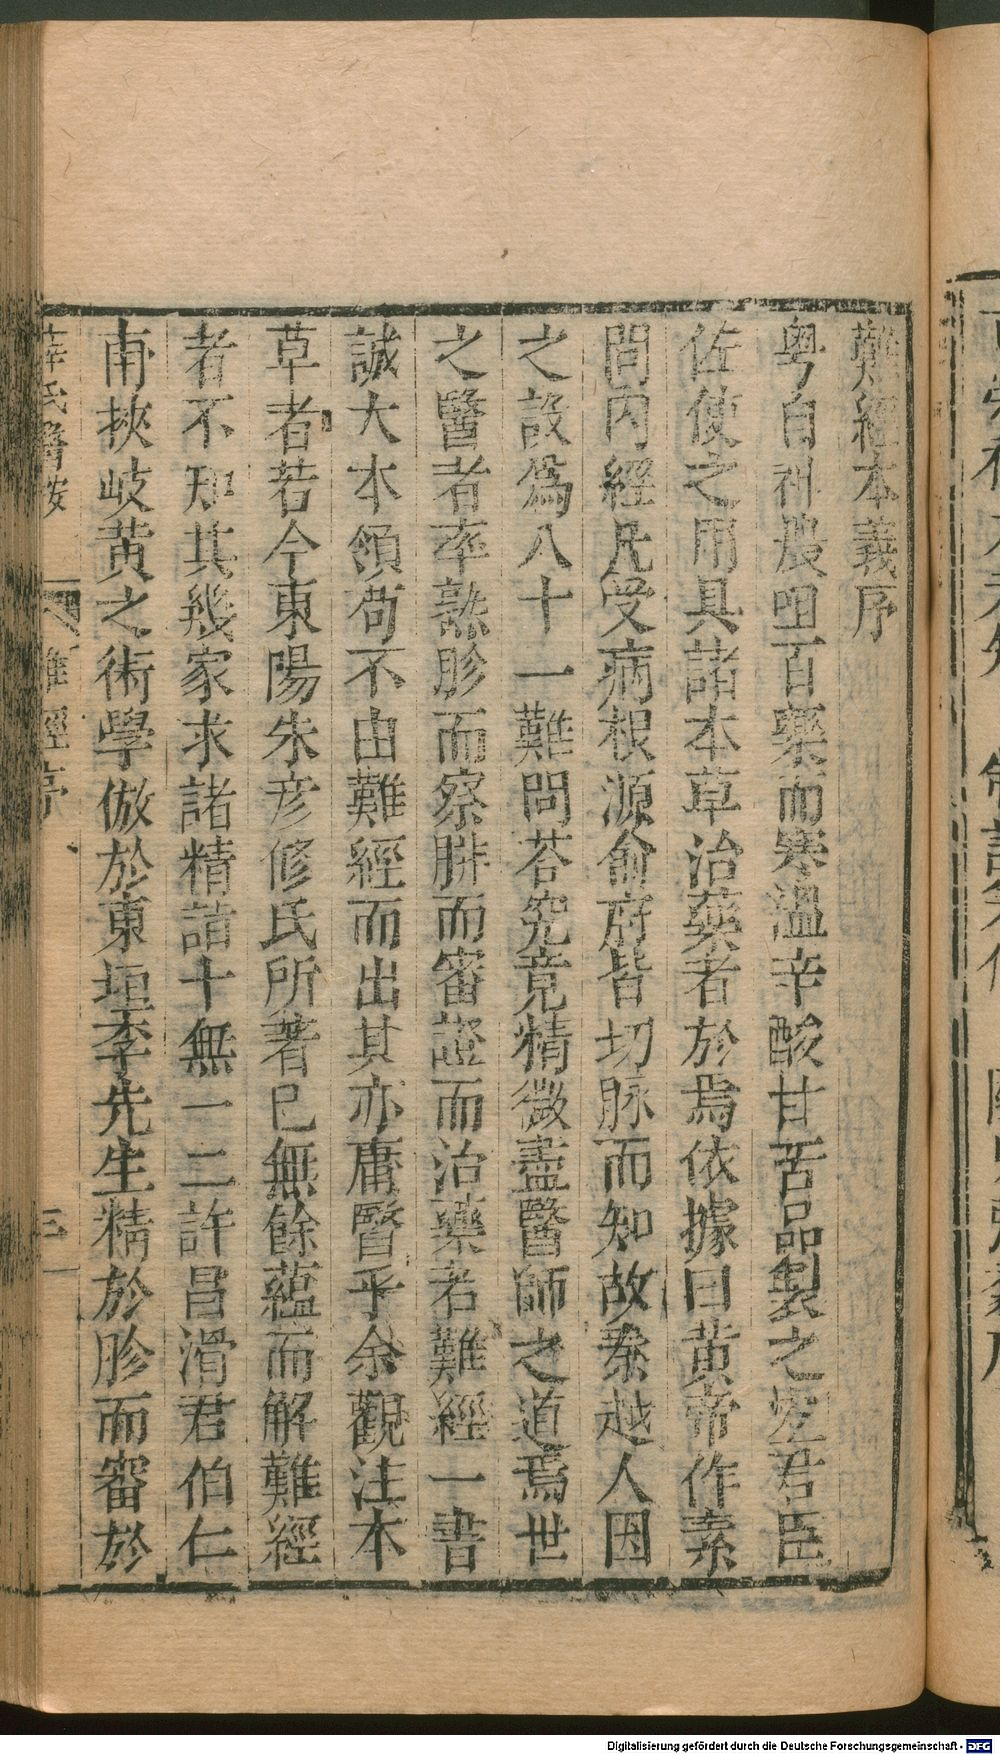 難經本義序
粤自神農咀百藥而寒溫辛酸甘苦品製之宜君臣
佐使之用具諸本草治藥者於焉依據曰黃帝作素
問內經凡受病根源俞府皆切脉而知故秦越人因
之設爲八十一難問荅究竟精微盡醫師之道焉世
之醫者率熟胗而察脉而審證而治藥者難經一書
誠大本領苟不由難經而出其亦庸醫乎余觀注本
草者若今東陽朱彦修氏所著已無餘蘊而解難經
者不知其幾家求諸精詣十無一二許昌滑君伯仁
甫挾岐黃之術學倣於東垣李先生精於胗而審於
薛氏醫按
難經序
三
Digitalisierung gefördert durch die Deutsche Forschungsgemeinschaft - DFG